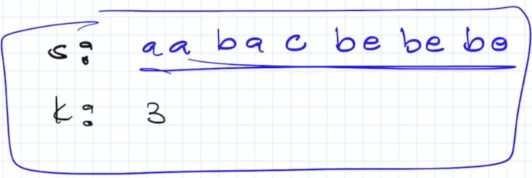 s: aabacbebebe
k: 3